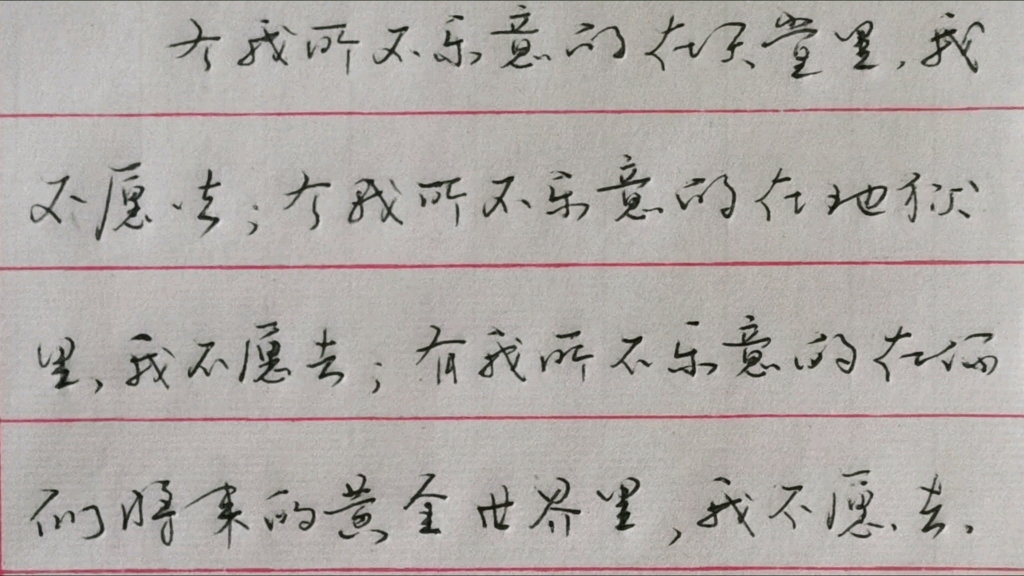 有我所不乐意的在天堂里,我
不愿去;有我所不乐意的在地狱
里,我不愿去;有我所不乐意的在你
们将来的黄金世界里,我不愿去.